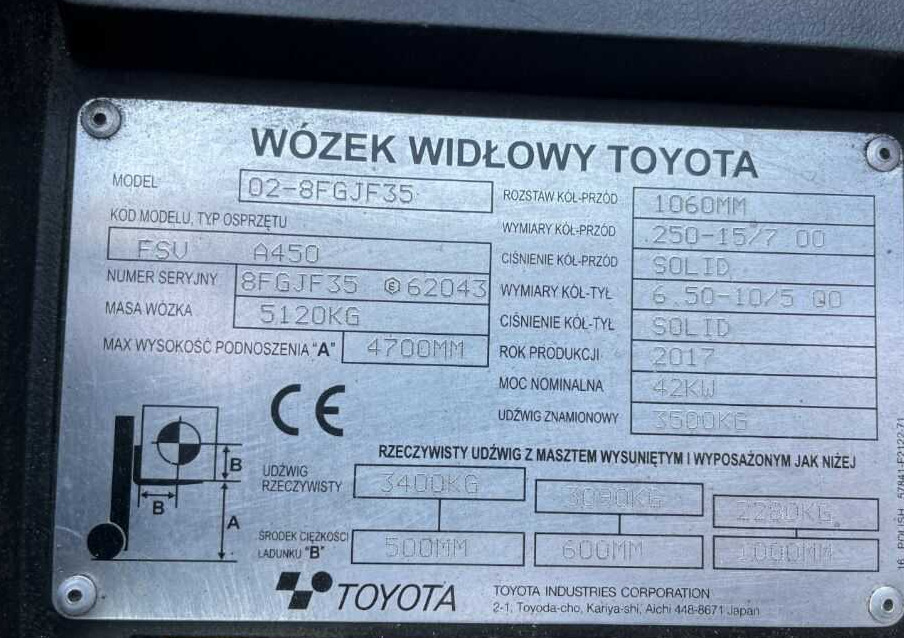 WÓZEK WIDŁOWY TOYOTA
MODEL 02-8FGJF35
KOD MODELU, TYP OSPRZĘTU
FSV A450
NUMER SERYJNY 8FGJF35 Ⓔ62043
MASA WÓZKA 5120KG
MAX WYSOKOŚĆ PODNOSZENIA "A" 4700MM
ROZSTAW KÓŁ-PRZÓD 1060MM
WYMIARY KÓŁ-PRZÓD 250-15/7 00
CIŚNIENIE KÓŁ-PRZÓD SOLID
WYMIARY KÓŁ-TYŁ 6.50-10/5 00
CIŚNIENIE KÓŁ-TYŁ SOLID
ROK PRODUKCJI 2017
MOC NOMINALNA 42KW
UDŹWIG ZNAMIONOWY 3500KG
CE
B
B
A
RZECZYWISTY UDŹWIG Z MASZTEM WYSUNIĘTYM I WYPOSAŻONYM JAK NIŻEJ
UDŹWIG
RZECZYWISTY 3400KG 3090KG 2280KG
ŚRODEK CIĘŻKOŚCI
ŁADUNKU "B" 500MM 600MM 1000MM
TOYOTA
TOYOTA INDUSTRIES CORPORATION
2-1, Toyoda-cho, Kariya-shi, Aichi 448-8671 Japan
16 POLISH 57841-F2122-71